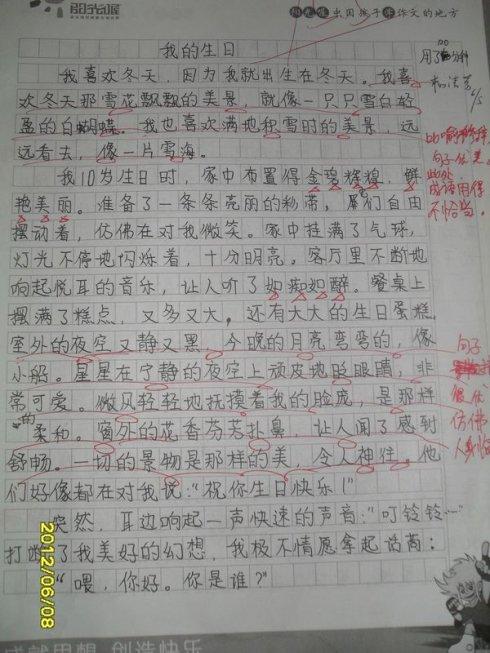 阳光喔
出国孩子 作文的地方
我的生日
我喜欢冬天，因为我就出生在冬天。我喜
欢冬天那雪花飘飘的美景，就像一只只雪白轻
盈的白蝴蝶。我也喜欢满地积雪时的美景，远
远看去，像一片雪海。
我10岁生日时，家中布置得金碧辉煌，鲜
艳美丽。准备了一条条亮丽的彩带，它们自由
摆动着，仿佛在对我微笑。家中挂满了气球，
灯光不停地闪烁着，十分明亮。客厅里不断地
响起悦耳的音乐，让人听了如痴如醉。餐桌上
摆满了糕点，又多又大，还有大大的生日蛋糕。
室外的夜空又静又黑，今晚的月亮弯弯的，像
小船。星星在宁静的夜空上顽皮地眨眼睛，非
常可爱。微风轻轻地抚摸着我的脸庞，是那样
的柔和。窗外的花香芬芳扑鼻，让人闻了感到
舒畅。一切的景物是那样的美，令人神往。他
们好像都在对我说："祝你生日快乐！"
突然，耳边响起一声快速的声音："叮铃铃…"
打断了我美好的幻想，我极不情愿拿起话筒：
"喂，你好。你是谁？"
用了 分钟
句子优美
成语用得
不恰当。
句子
很优
仿佛
人身临
2012/06/08
成就思想 创造快乐